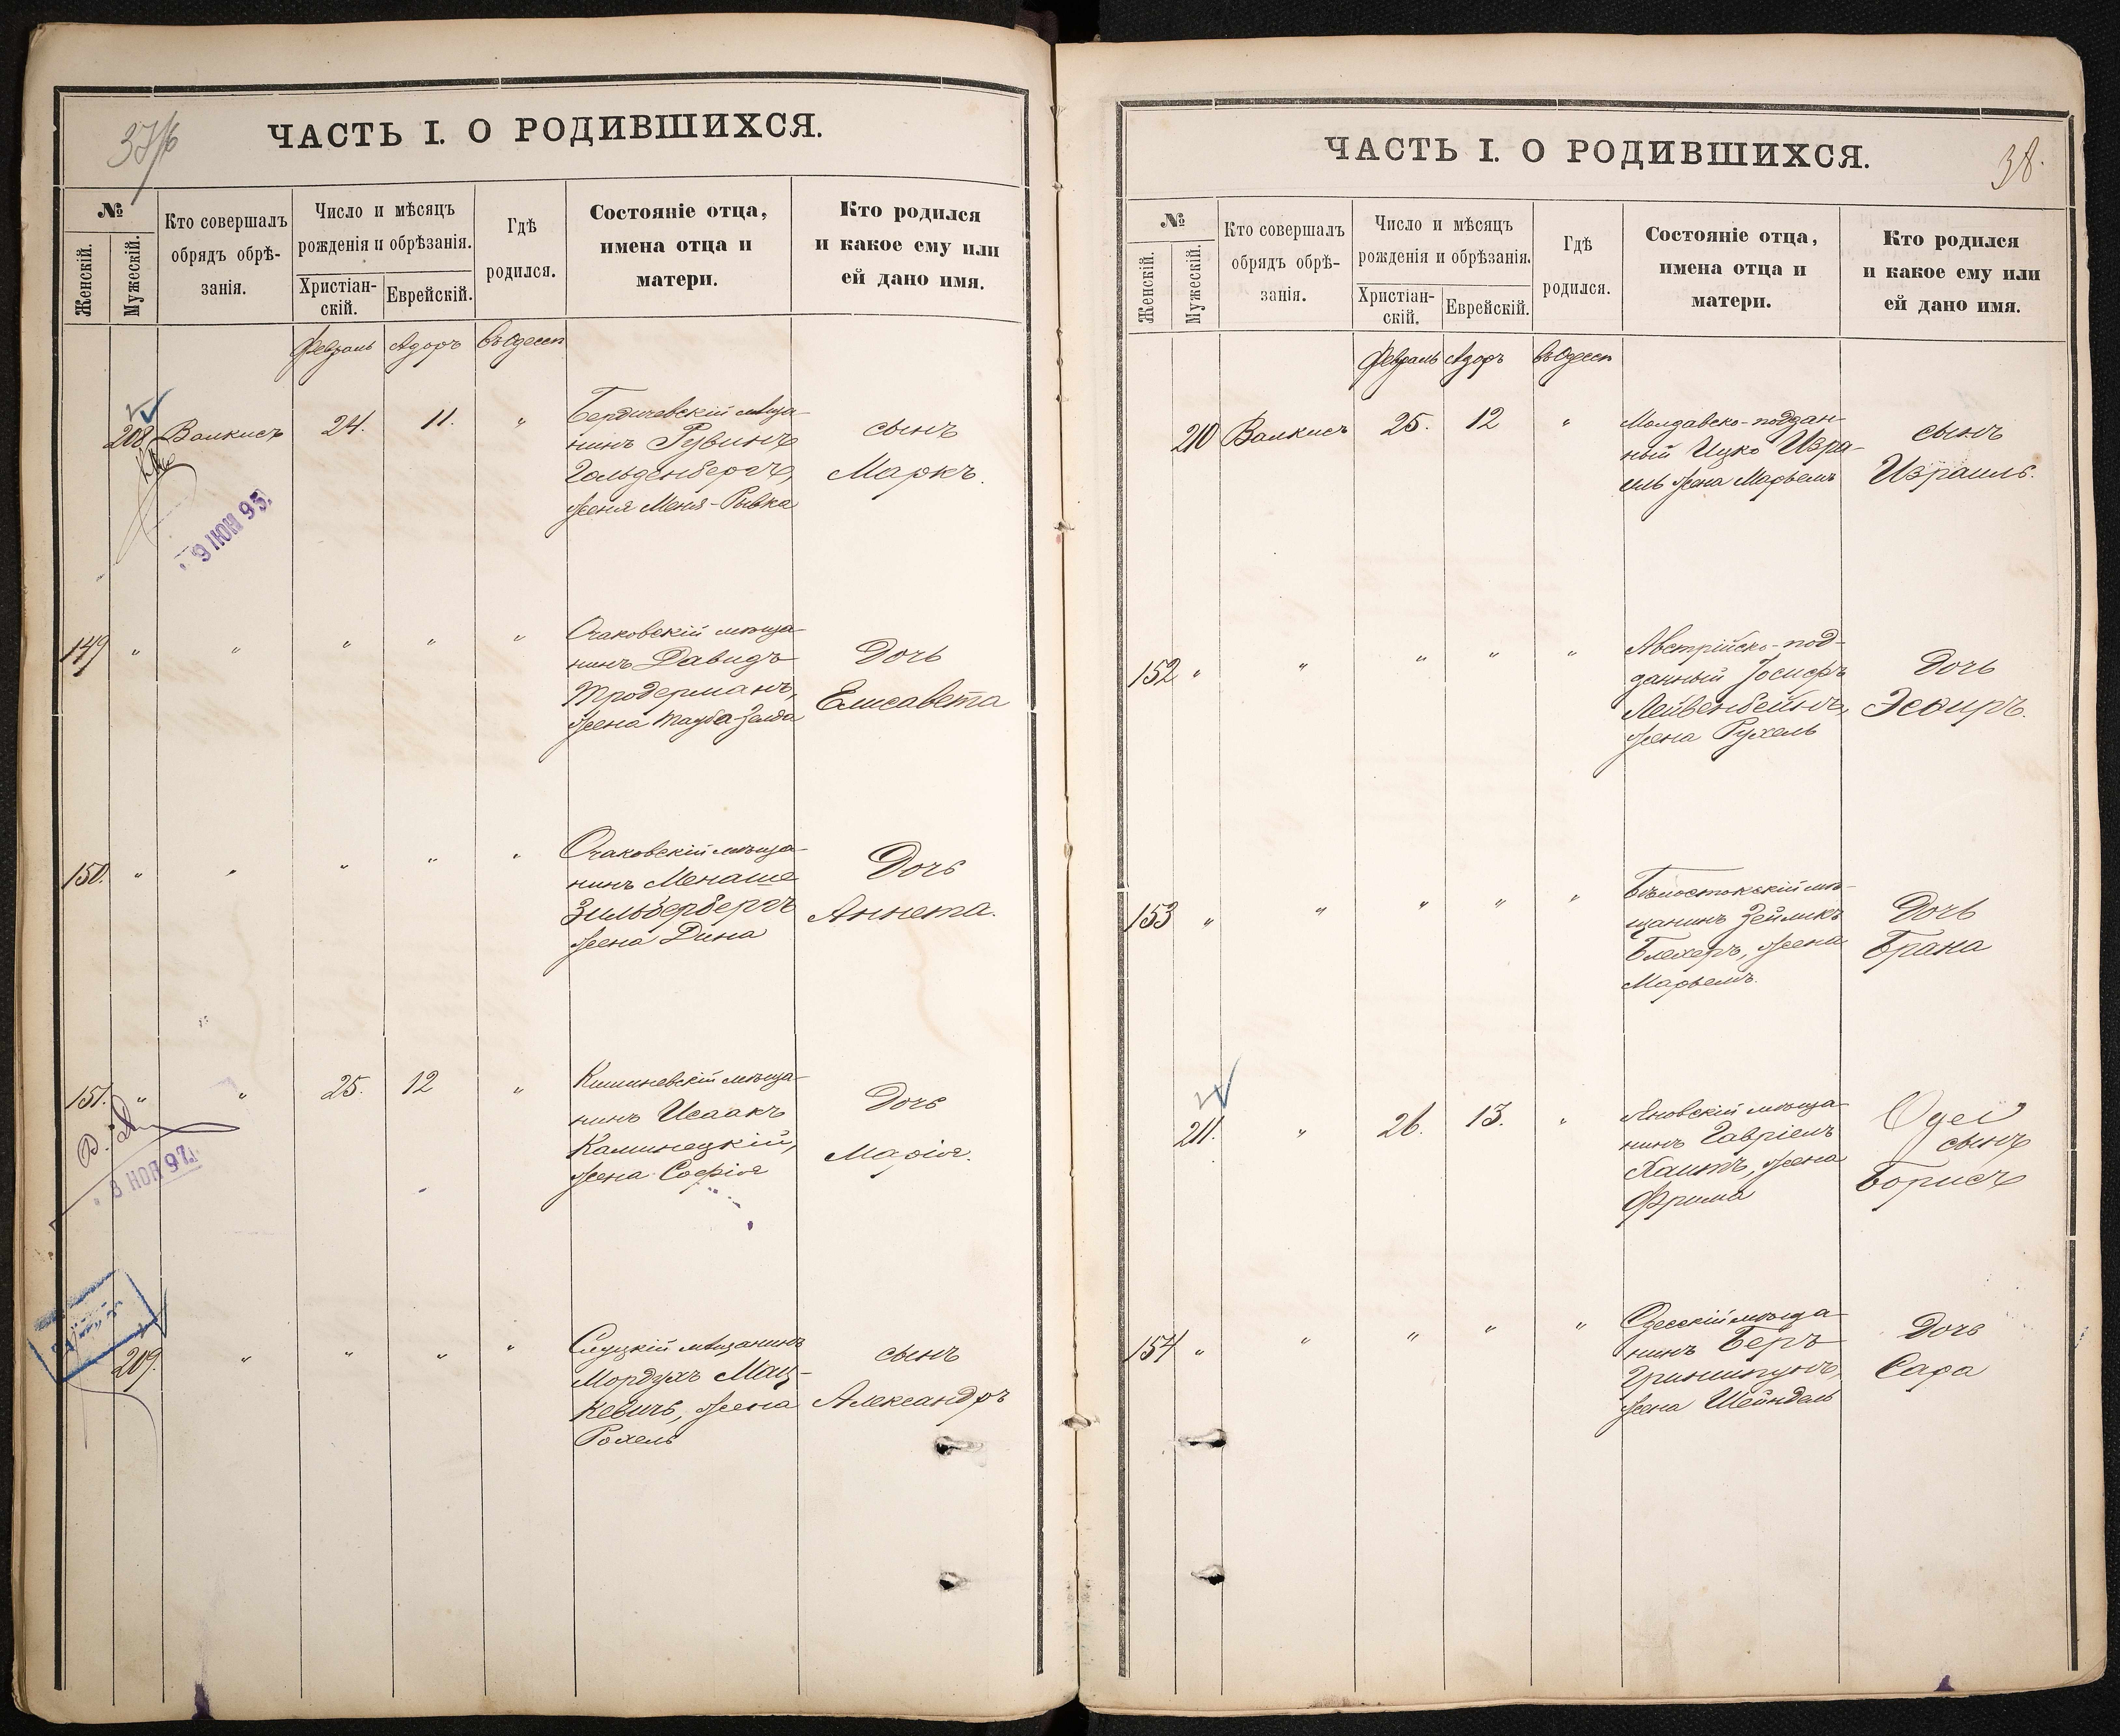 37/6
ЧАСТЬ I. О РОДИВШИХСЯ.
№
Женскій.
Мужескій.
Кто совершалъ
обрядъ обрѣ-
занія.
Число и мѣсяцъ
рожденія и обрѣзанія.
Христіан-
скій.
Еврейскій.
Гдѣ
родился.
Состояніе отца,
имена отца и
матери.
Кто родился
и какое ему или
ей дано имя.
Февраль Адоръ Въ Одессѣ
208 Валкисъ 24. 11. "
Бердичевскій мѣща-
нинъ Рувинъ
Гольденбергъ,
жена Меня-Ривка
сынъ
Маркъ.
9 ІЮН 95
149 " " " " "
Очаковскій мѣща-
нинъ Давидъ
Тродерманъ,
жена Тауба-Зелда
Дочь
Елисавета
150. " " " " "
Очаковскій мѣща-
нинъ Менаше
Зильберберъ
жена Дина
Дочь
Аннета.
151. " " 25. 12 "
Кишиневскій мѣща-
нинъ Исаакъ
Каминецкій,
жена Софія
Дочь
Марія.
8 НОЯ 97
209. " " " "
Слуцкій мѣщанинъ
Мордухъ Мац-
кевичъ, жена
Рохель
сынъ
Александръ
38.
ЧАСТЬ I. О РОДИВШИХСЯ.
№
Женскій.
Мужескій.
Кто совершалъ
обрядъ обрѣ-
занія.
Число и мѣсяцъ
рожденія и обрѣзанія.
Христіан-
скій.
Еврейскій.
Гдѣ
родился.
Состояніе отца,
имена отца и
матери.
Кто родился
и какое ему или
ей дано имя.
Февраль Адоръ Въ Одессѣ
210 Валкисъ 25. 12 "
Молдавско-поддан-
ный Ицко Изра-
иль жена Марьемъ
сынъ
Израиль.
152 " " " " "
Австрійско-под-
данный Іосифъ
Лейвенбейнъ,
жена Рухель
Дочь
Эсѳирь.
153 " " " " "
Бѣлостокскій мѣ-
щанинъ Зейликъ
Блехеръ, жена
Марьемъ.
Дочь
Брана
211. " 26. 13. "
Яновскій мѣща-
нинъ Гавріель
Хаитъ, жена
Фрима
сынъ
Борисъ
154 " " " " "
Одесскій мѣща-
нинъ Беръ
Гриншпунъ,
жена Шейндель
Дочь
Сара